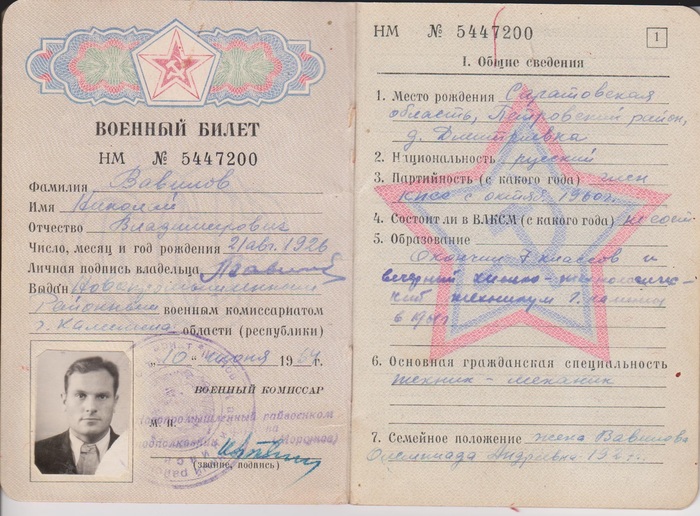 ВОЕННЫЙ БИЛЕТ
НМ № 5447200
Фамилия Вавилов
Имя Николай
Отчество Владимирович
Число, месяц и год рождения 21 авг. 1926
Личная подпись владельца
Выдан Новопромышленным
Районным военным комиссариатом
г. Калинина области (республики)
„10" июня 1964 г.
ВОЕННЫЙ КОМИССАР
м. п.
Новопромышленный райвоенком
(звание, подпись)
НМ № 5447200 1
I. Общие сведения
1. Место рождения Саратовская
область, Петровский район,
д. Дмитриевка
2. Национальность русский
3. Партийность (с какого года) член
КПСС с октября 1960 г.
4. Состоит ли в ВЛКСМ (с какого года) не сост.
5. Образование
Окончил 7 классов и
вечерний химико-технологичес-
кий техникум г. Калинин
в
6. Основная гражданская специальность
техник - механик
7. Семейное положение жена Вавилова
Андреевна